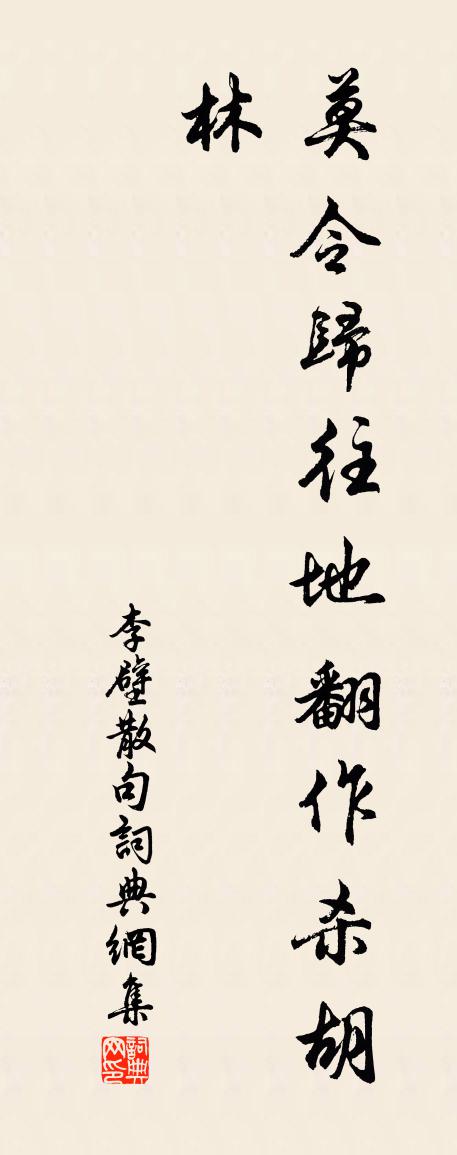 莫令歸往地翻作杀胡
林
李壁散句詞典網集
詞典网印